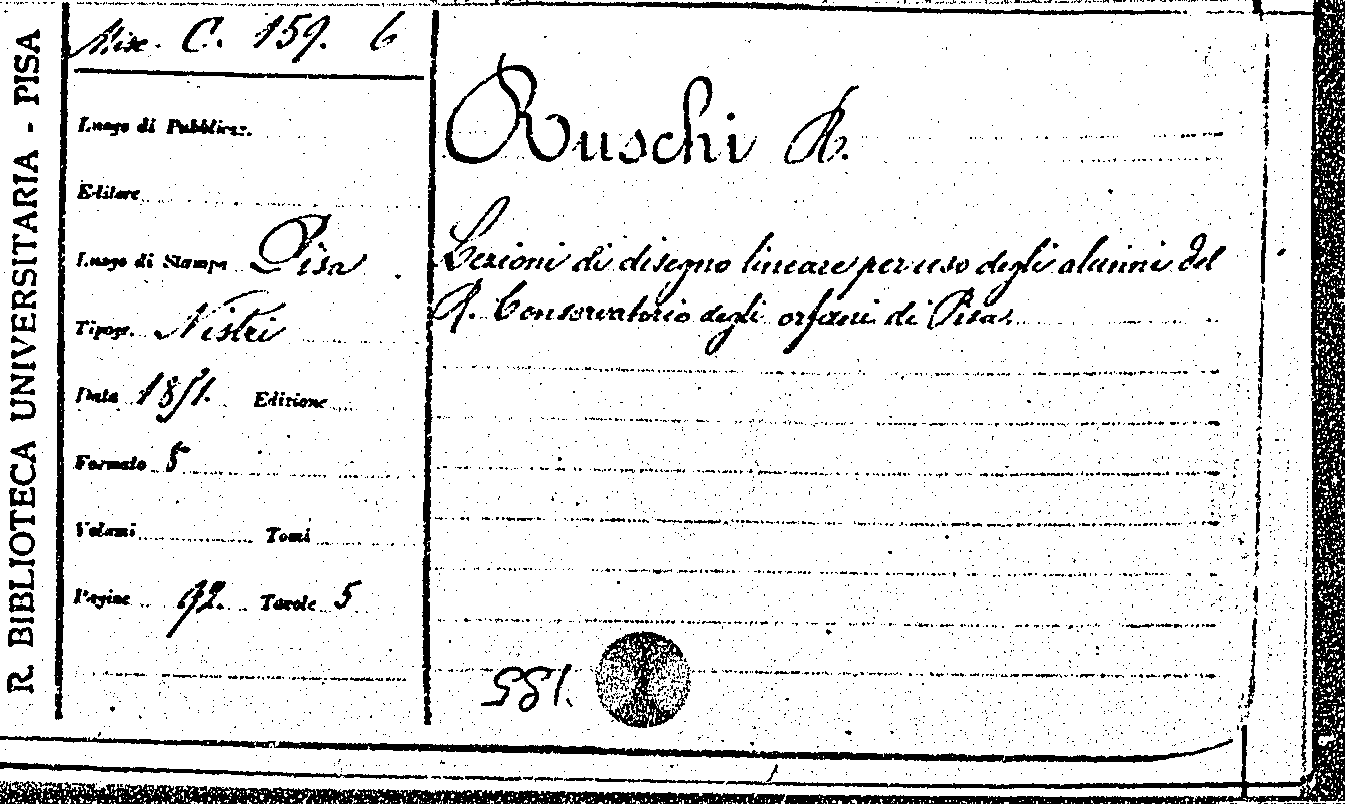 R. BIBLIOTECA UNIVERSITARIA - PISA
Misc. C. 159. 6
Luogo di Pubblicaz.
Editore
Luogo di Stampa Pisa
Tipogr. Nistri
Data 1851. Edizione
Formato 5
Volumi Tomi
Pagine 92. Tavole 5
Ruschi R.
Lezioni di disegno lineare per uso degli alunni del
R. Conservatorio degli orfani di Pisa